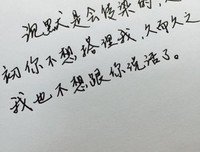 沉默是会传染的,
初你不想搭理我,久而久之
我也不想跟你说话了。